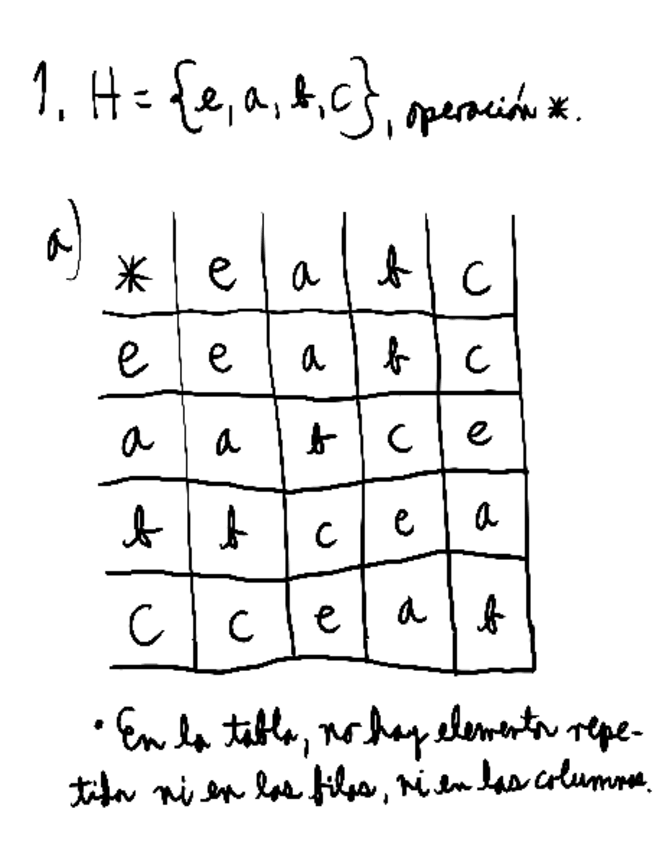 1. H = {e, a, b, c}, operación *.
a)
* e a b c
e e a b c
a a b c e
b b c e a
c c e a b
• En la tabla, no hay elementos repe-
tidos ni en las filas, ni en las columnas.